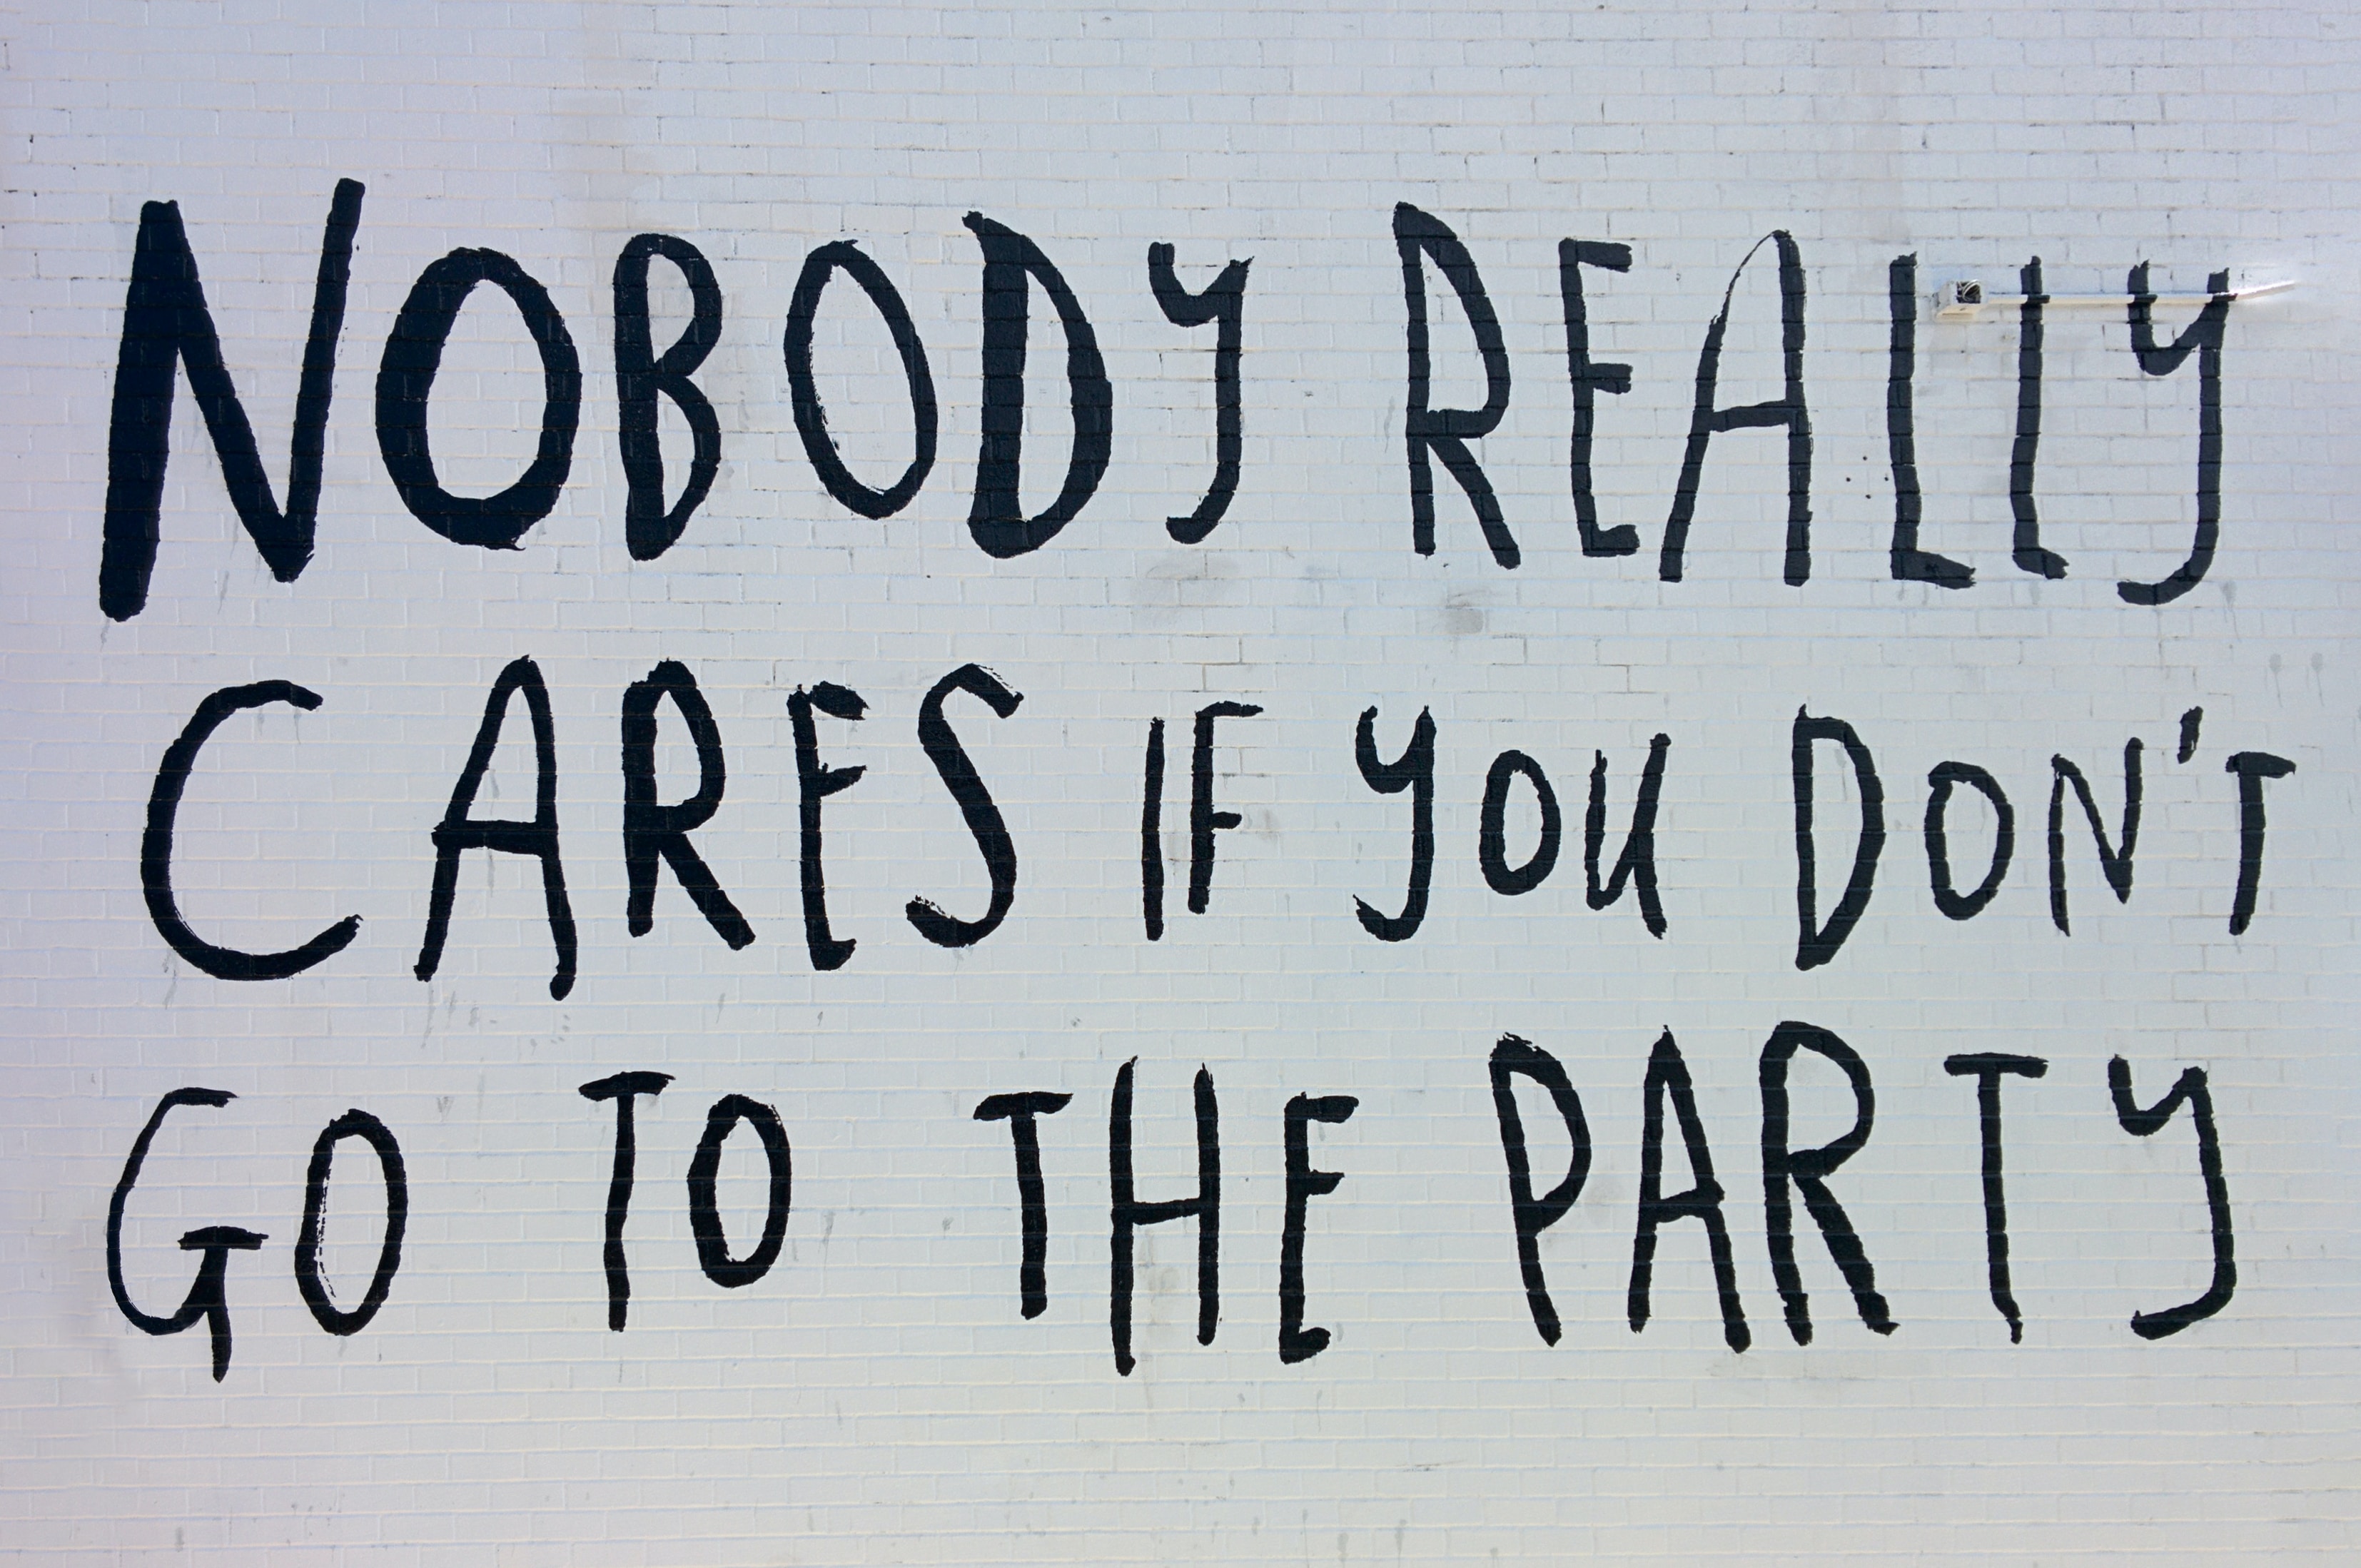 NOBODY REALLY
CARES IF YOU DON'T
GO TO THE PARTY